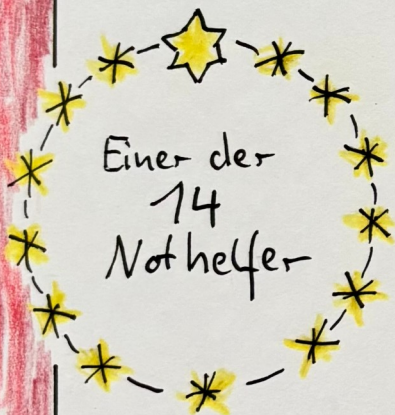 Einer der
14
Nothelfer